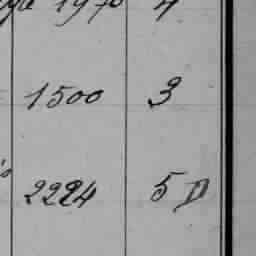 1970 4
1500 3
2224 5 D